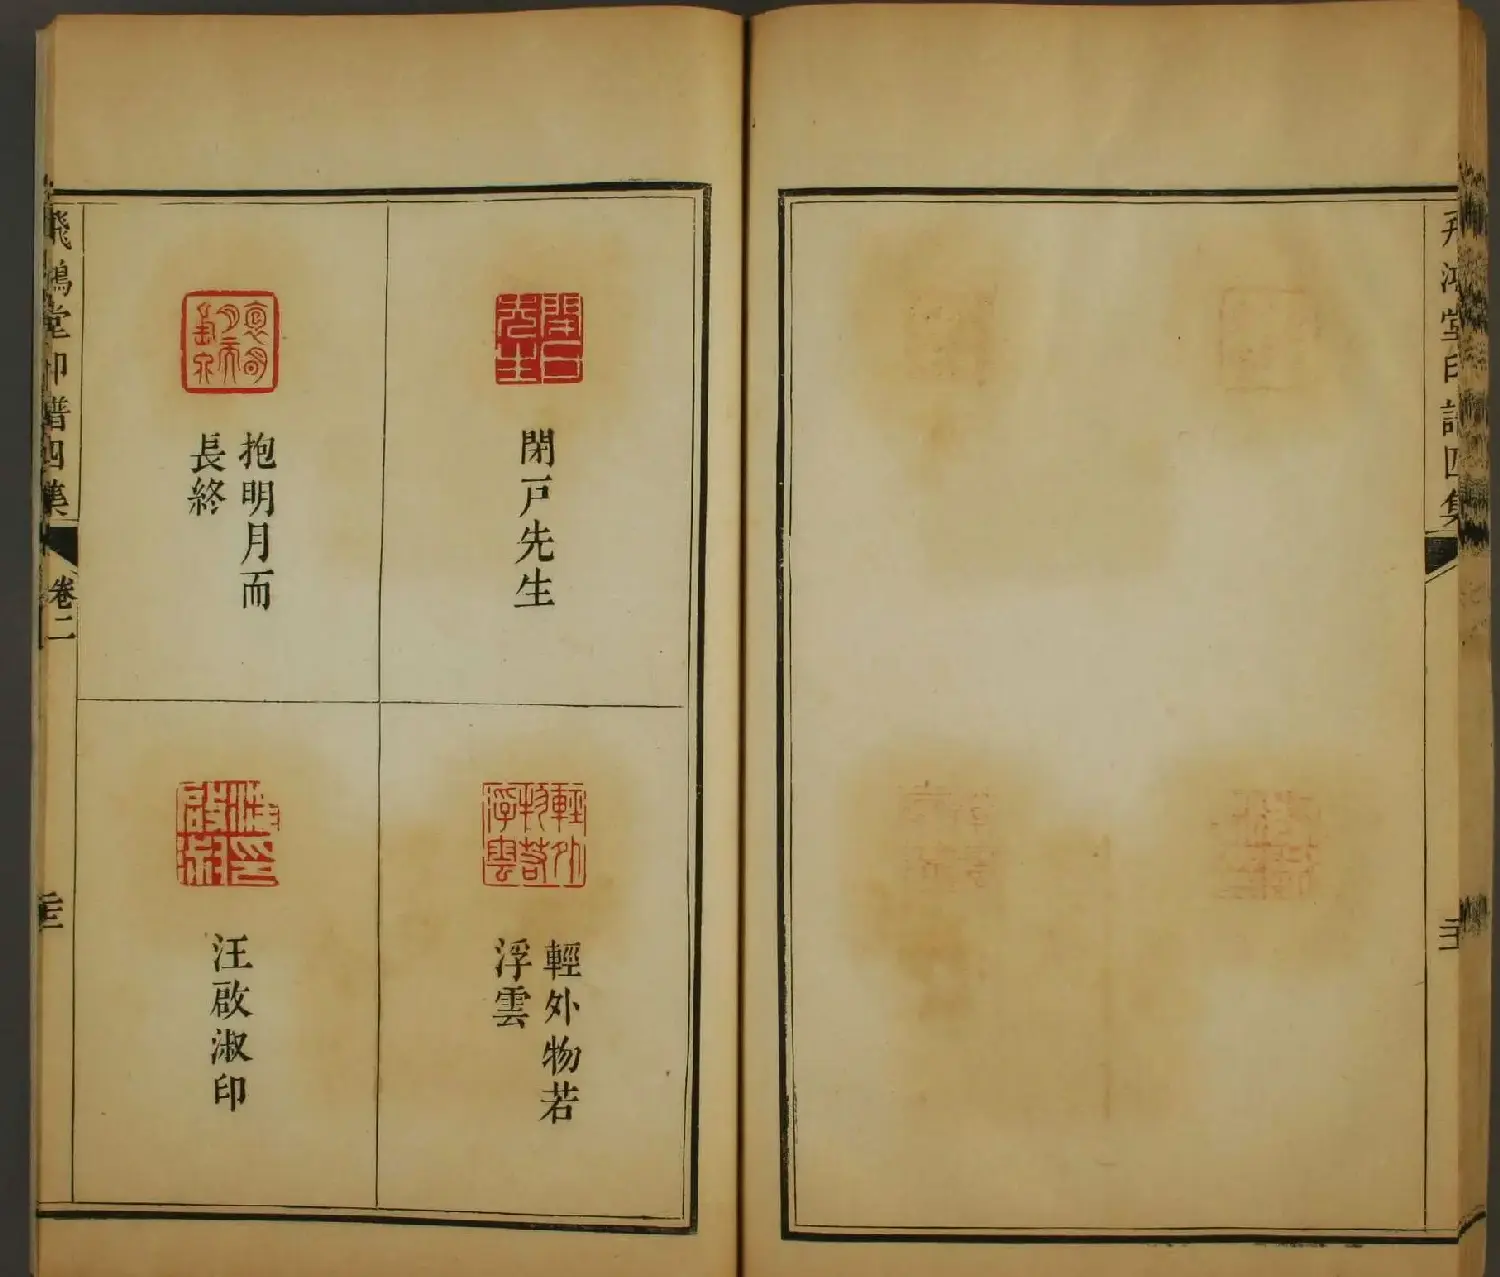 飛鴻堂印譜四集
閑戸先生
抱明月而
長終
輕外物若
浮雲
汪啟淑印
飛鴻堂印譜四集
卷二